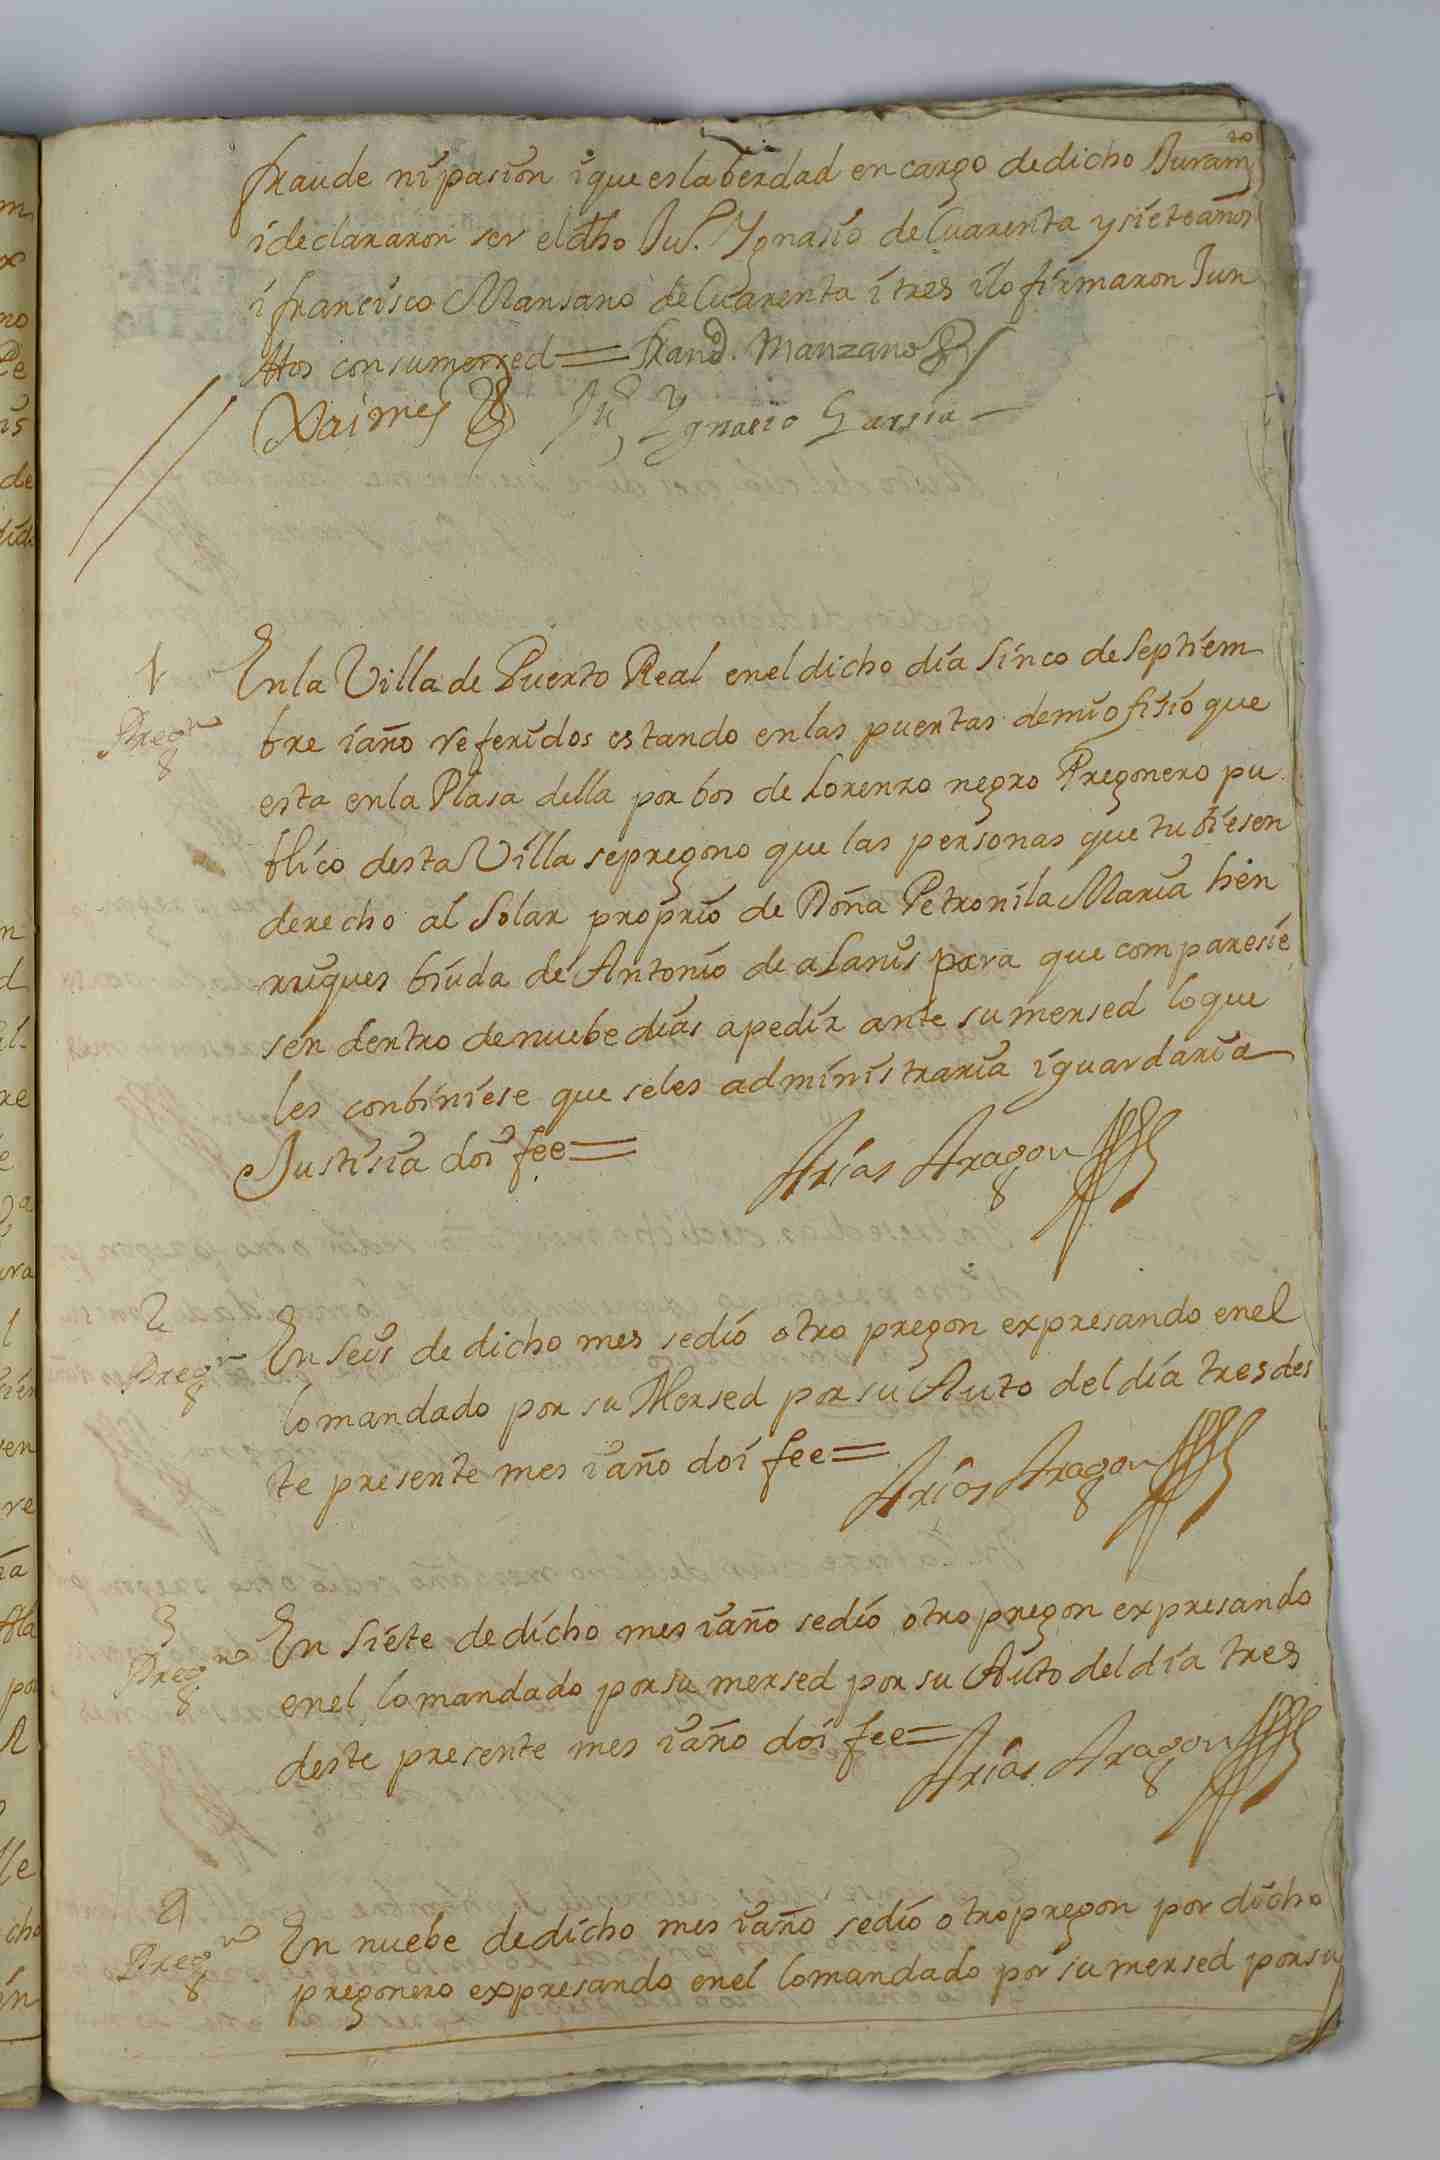 fraude ni pasion i que es la berdad en cargo de dicho Juramto
i declararon ser el dho Ju. Ygnasio de Cuarenta y siete años
i francisco Mansano de Cuarenta i tres i lo firmaron Jun
ttos con su merced = Franco. Manzano
Xaimes Ju Ygnacio Garsia
1
Pregon
En la Villa de Puerto Real en el dicho dia Sinco de Septiem
bre i año referidos estando en las puertas de mi ofisio que
esta en la Plasa della por bos de Lorenzo negro Pregonero pu
blico desta Villa se pregono que las personas que tubiesen
derecho al Solar proprio de Doña Petronila Maria hen
rriques biuda de Antonio de alanis para que comparesie
sen dentro de nuebe dias a pedir ante su mersed lo que
les conbiniese que se les administraria i guardaria
Justisia doi fee =
Arias Aragon
2
Pregon
En Seis de dicho mes se dio otro pregon expresando en el
lo mandado por su Mersed por su Auto del dia tres des
te presente mes i año doi fee =
Arias Aragon
3
Pregno
En Siete de dicho mes i año se dio otro pregon expresando
en el lo mandado por su mersed por su Auto del dia tres
deste presente mes i año doi fee =
Arias Aragon
4
Pregno
En nuebe de dicho mes i año se dio otro pregon por dicho
pregonero expresando en el lo mandado por su mersed por su